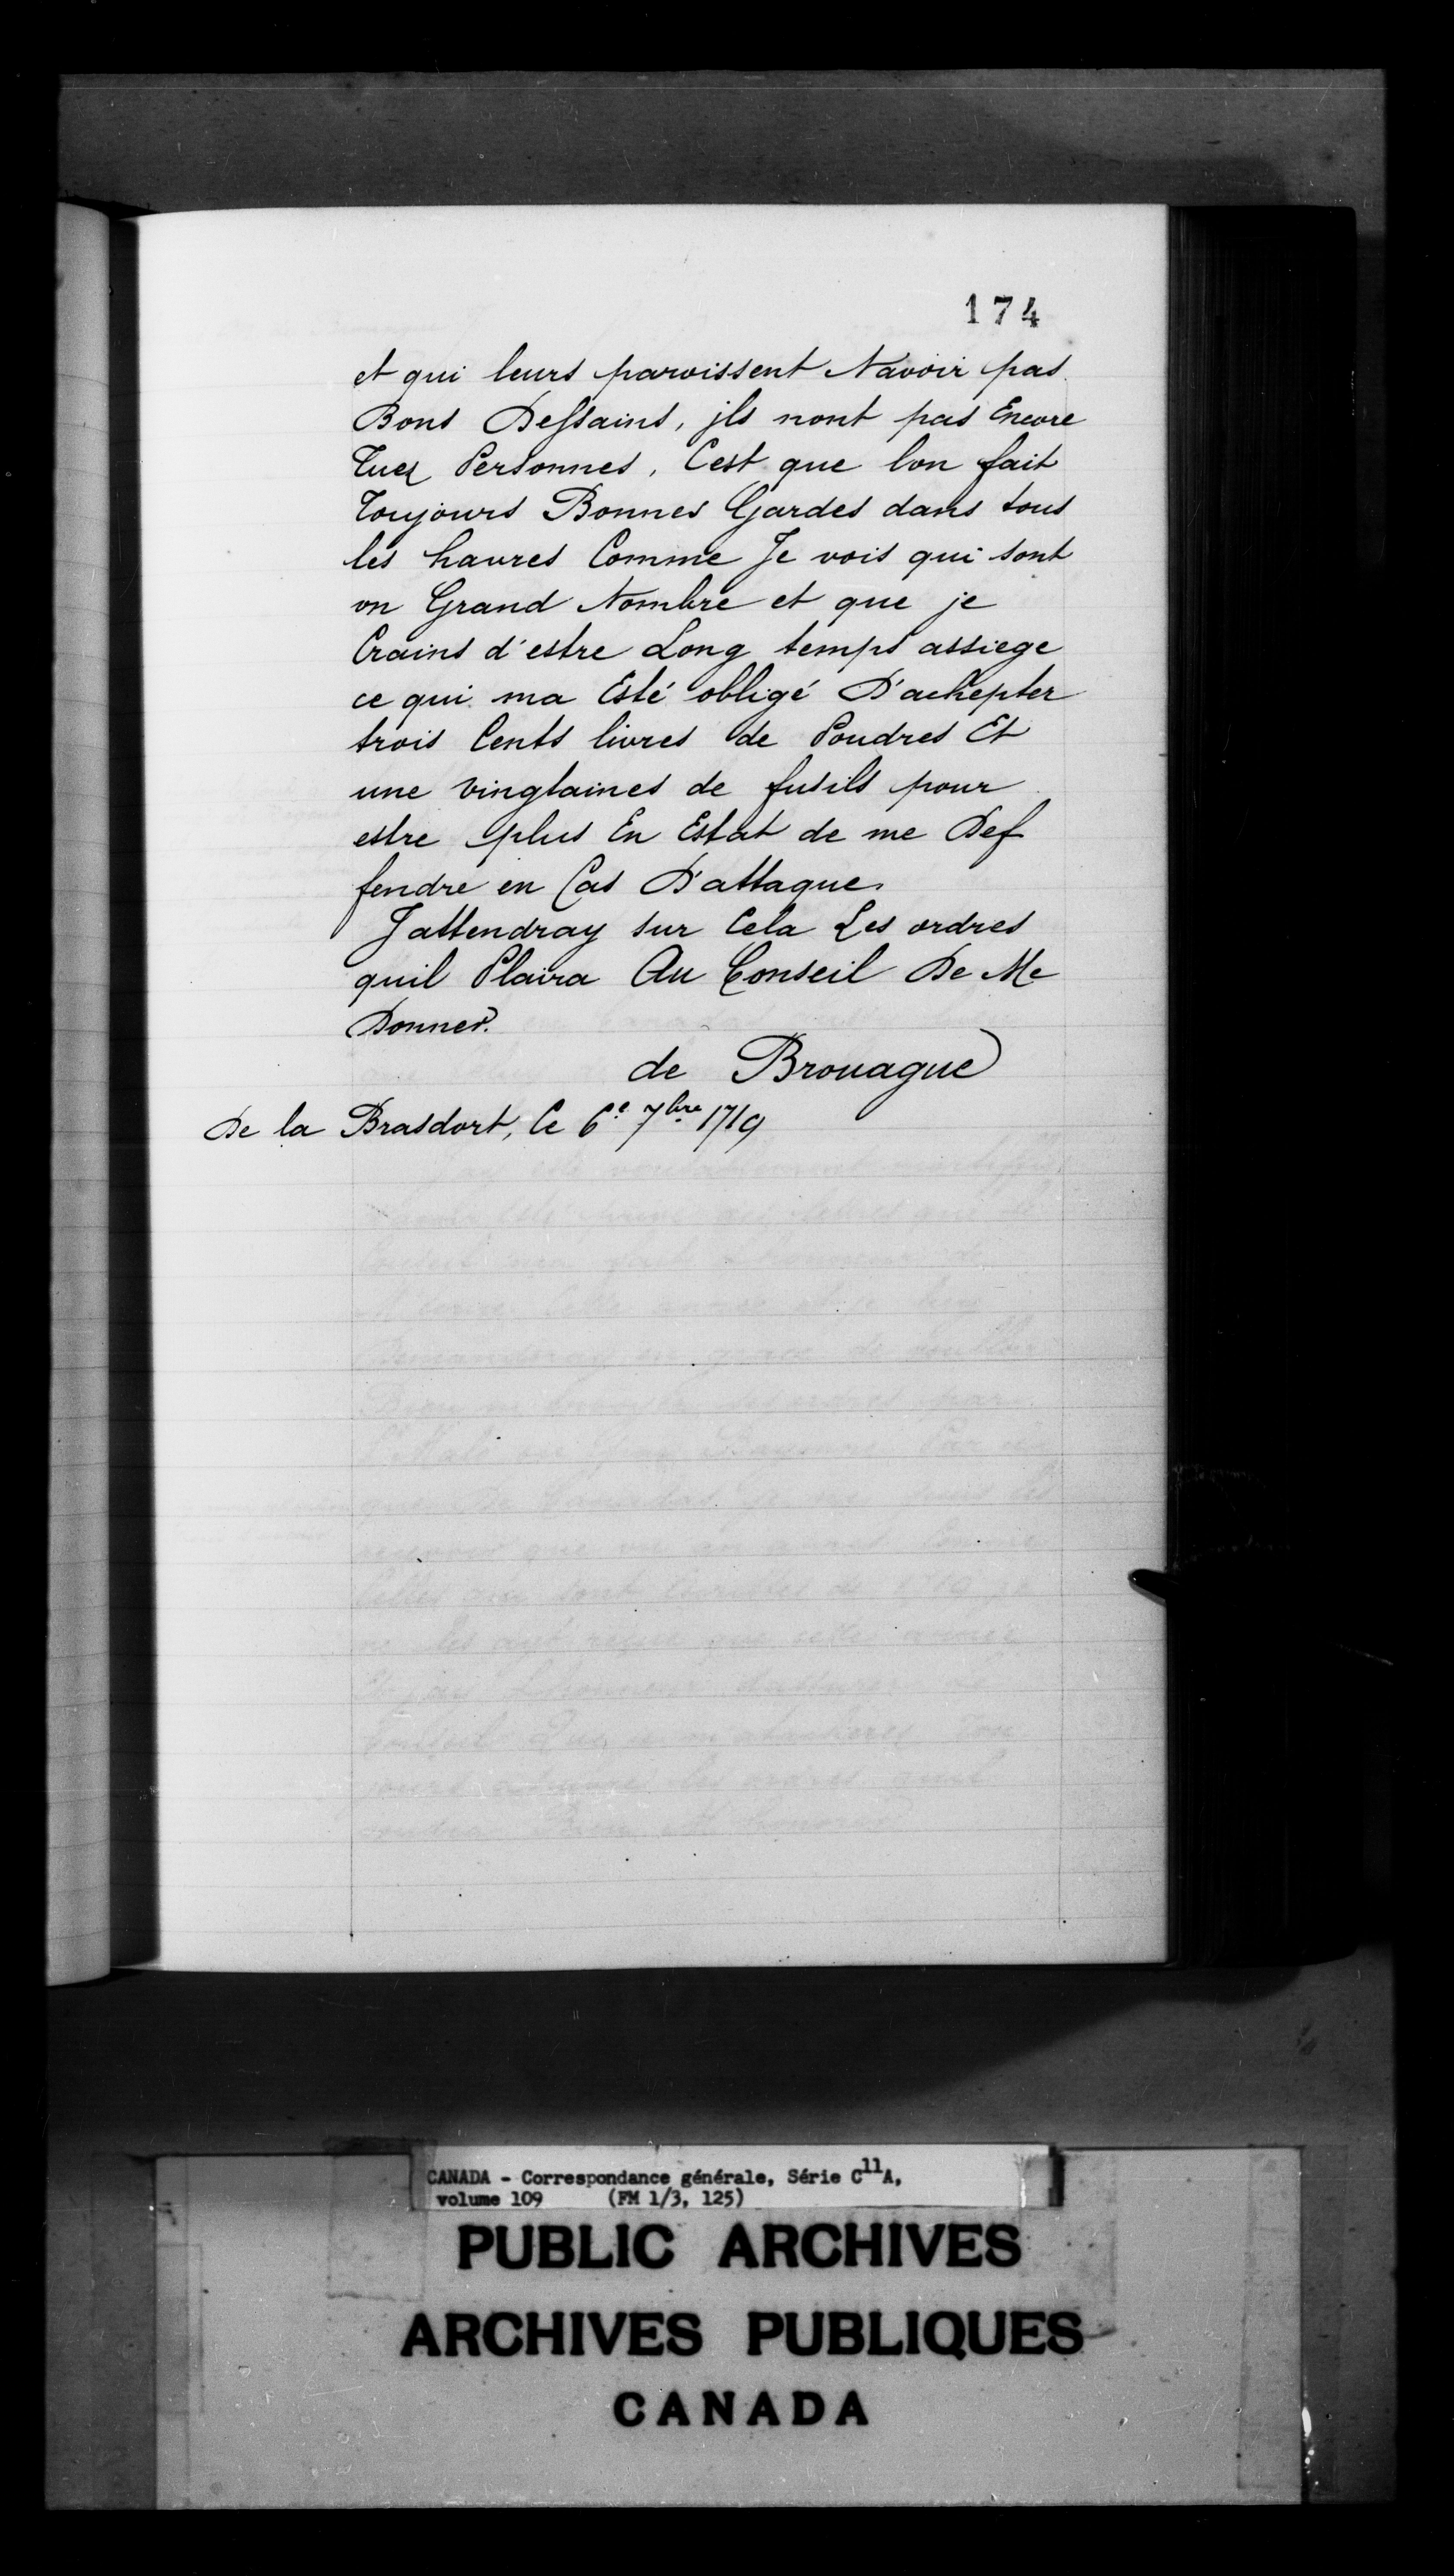 174
et qui leurs paroissent N'avoir pas
Bons Dessains, jls nont pas Encore
Tuez Personnes, Cest que lon fait
Toujours Bonnes Gardes dans tous
les havres Comme Je vois qui sont
on Grand Nombre et que je
Crains d'estre Long temps assiege
ce qui ma Esté obligé D'achepter
trois Cents livres de Poudres Et
une vingtaines de fusils pour
estre plus En Estat de me Def
fendre en Cas D'attaque.
Jattendray sur Cela Les ordres
quil Plaira Au Conseil De Me
Donner.
de Brouague
De la Brasdort, Ce 6e 7bre 1719
CANADA - Correspondance générale, Série C11A,
volume 109 (FM 1/3, 125)
PUBLIC ARCHIVES
ARCHIVES PUBLIQUES
CANADA